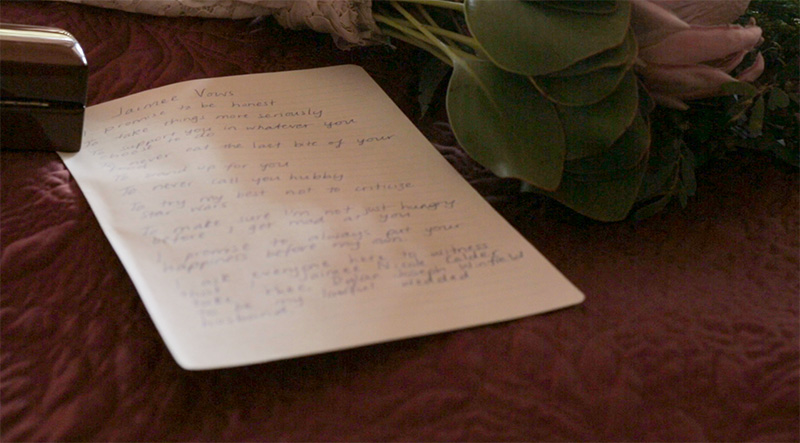 Jaimee Vows
I promise to be honest
To take things more seriously
To support you in whatever you
choose to do
To never eat the last bite of your
food
To stand up for you
To never call you hubby
To try my best not to criticize
star wars
To make sure I'm not just hungry
before I get mad at you
I promise to always put your
happiness before my own
I ask everyone here to witness
that I, Jaimee Nicole
take thee, Joseph Winfield
to be my lawful wedded
husband